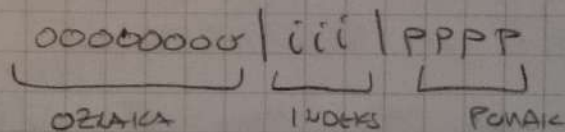 oooooooo|iii|pppp
OZNAKA INDEKS POMAK